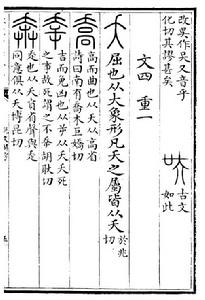 改吴作吳又音乎
化切其謬甚矣
古文
如此
文四 重一
夭
屈也从大象形凡夭之屬皆从夭
於兆
切
喬
高而曲也从夭从高省
詩曰南有喬木巨嬌切
㚔
吉而免凶也从屰从夭夭死
之事故死謂之不㚔胡耿切
奔
走也从夭賁省聲與走
同意俱从夭博昆切